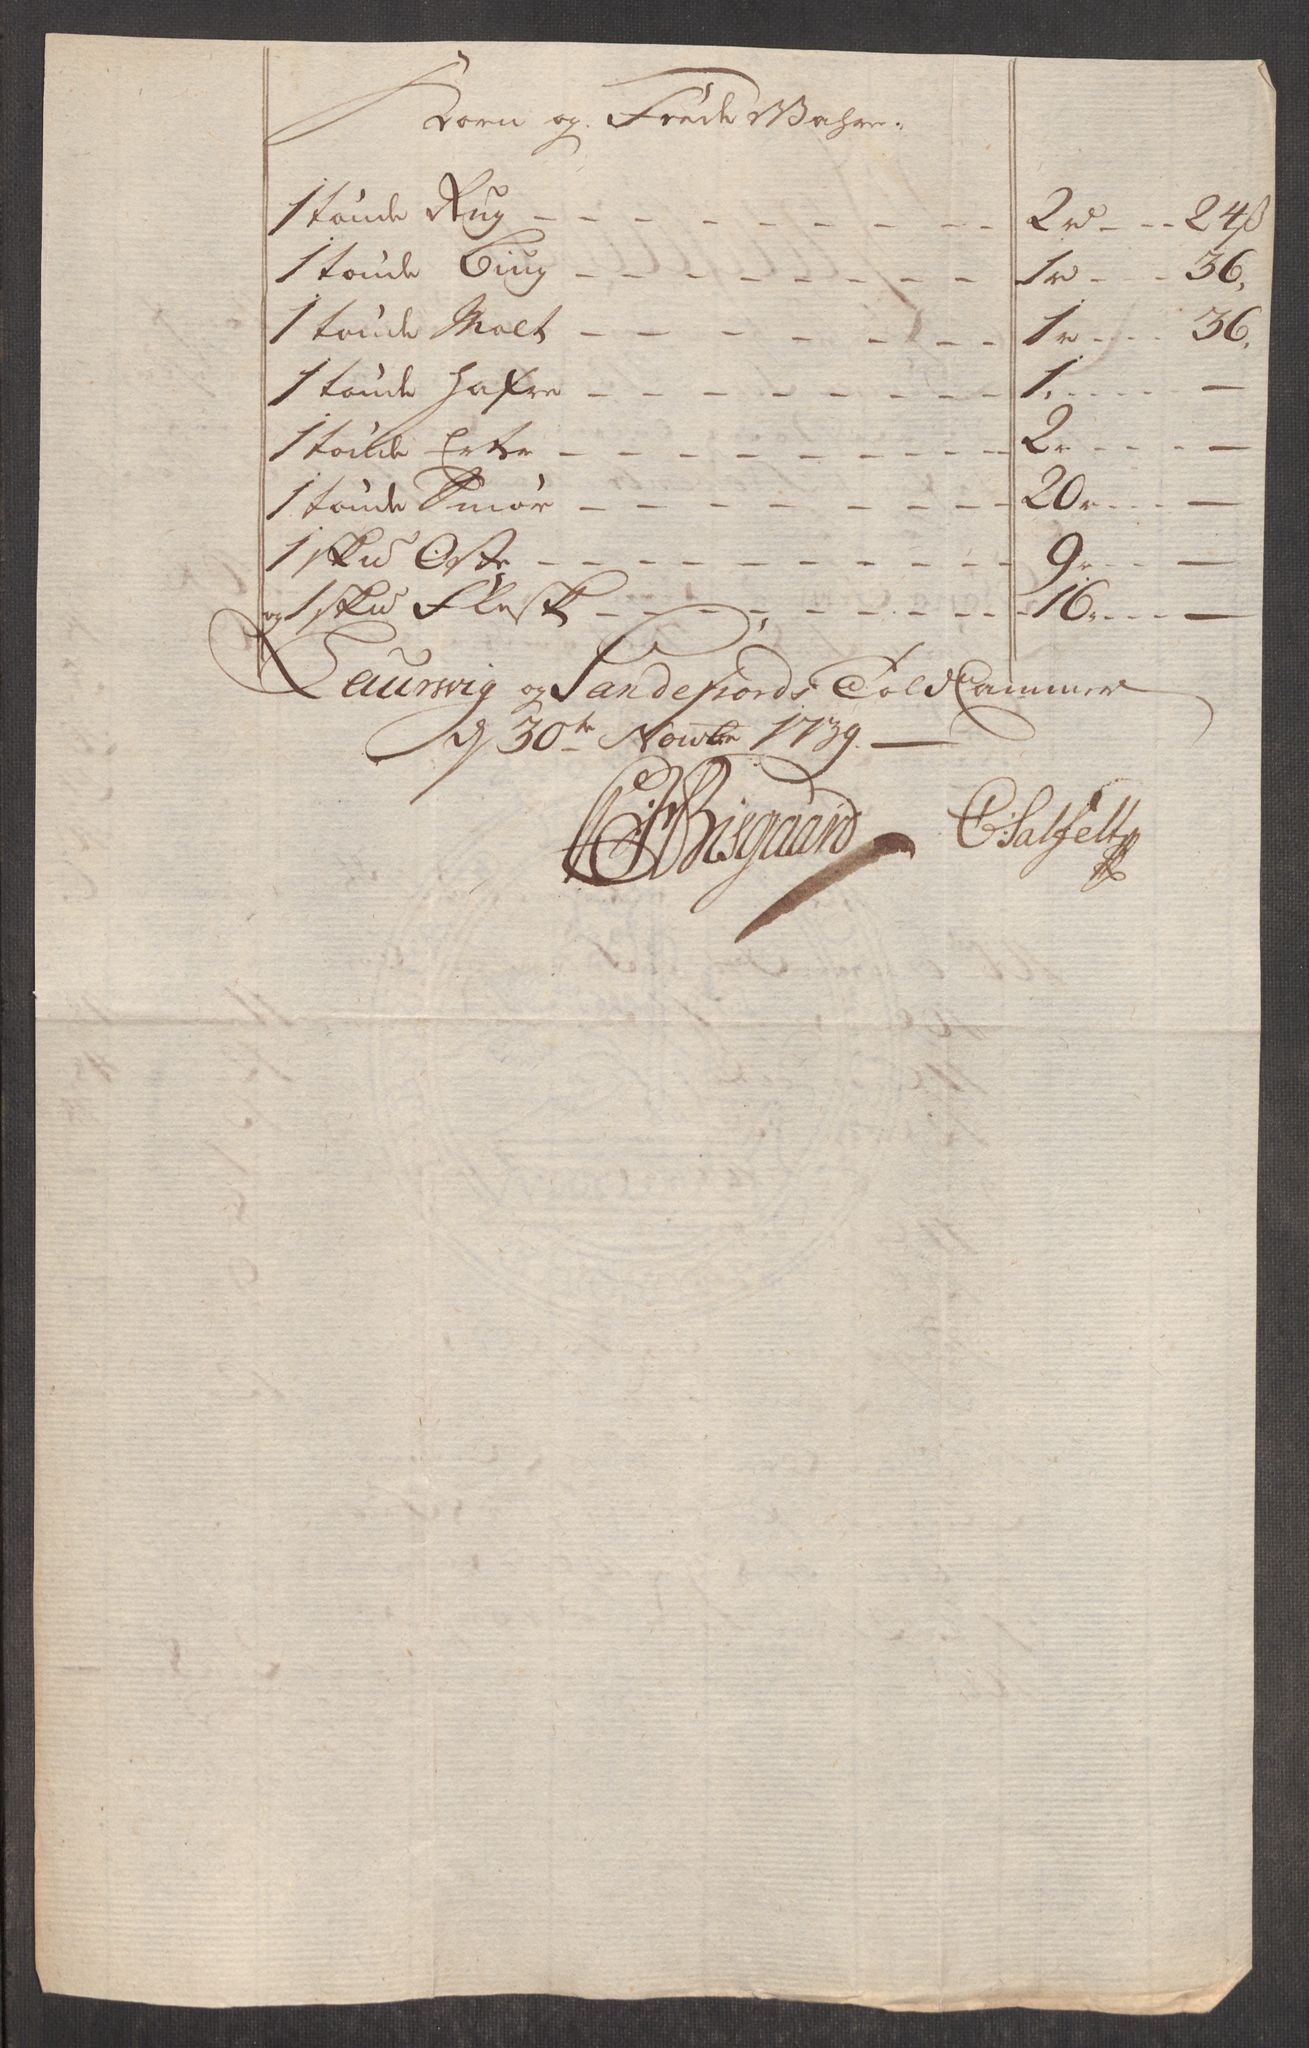 Korn og Fræde Wahre.
1 tønde Rug - - - - - - - - - 2 rd - - - 24 ß
1 tønde Biug - - - - - - - - 1 r - - - 36,
1 tønde Malt - - - - - - - - 1 r - - - 36,
1 tønde Hafre - - - - - - - - 1. - - - - —
1 tønde Erter - - - - - - - - 2 r - - - —
1 tønde Smør - - - - - - - - 20 r - - - —
1 skud Oste - - - - - - - - - 9 r - - - —
og 1 skud Flesk - - - - - - - - 16 r - - - —
Laurwig og Sandefiords Told Cammer
d 30te Novbr 1739. —
Bisgaard CSalfelt